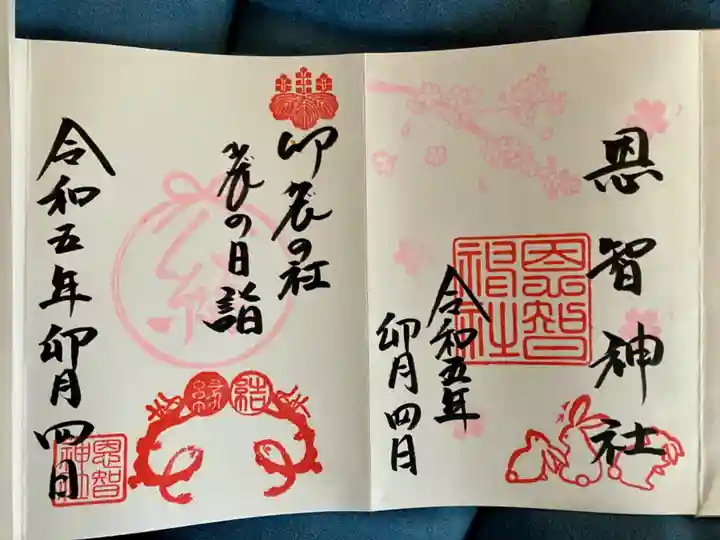 恩智神社
恩智神社
令和五年
卯月四日
卯辰の社
辰の日詣
結
結縁
令和五年卯月四日
恩智神社